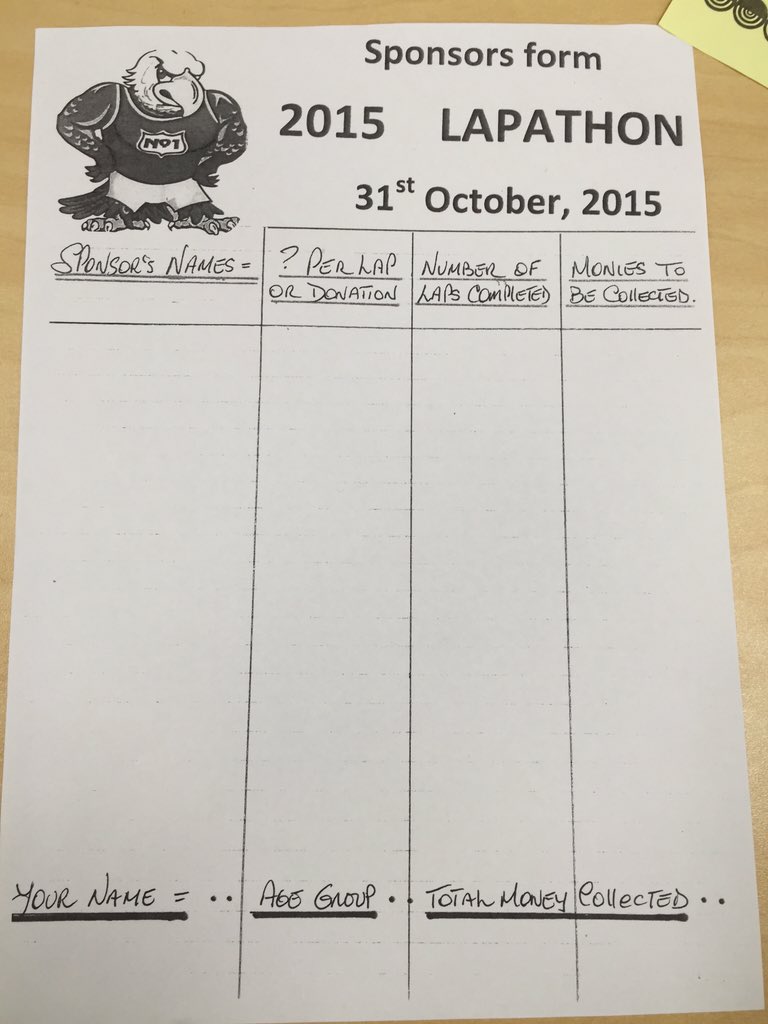 Sponsors form
2015 LAPATHON
31st October, 2015
No1
SPONSOR'S NAMES =
? PER LAP
OR DONATION
NUMBER OF
LAPS COMPLETED
MONIES TO
BE COLLECTED.
YOUR NAME = .. AGE GROUP .. TOTAL MONEY COLLECTED ..